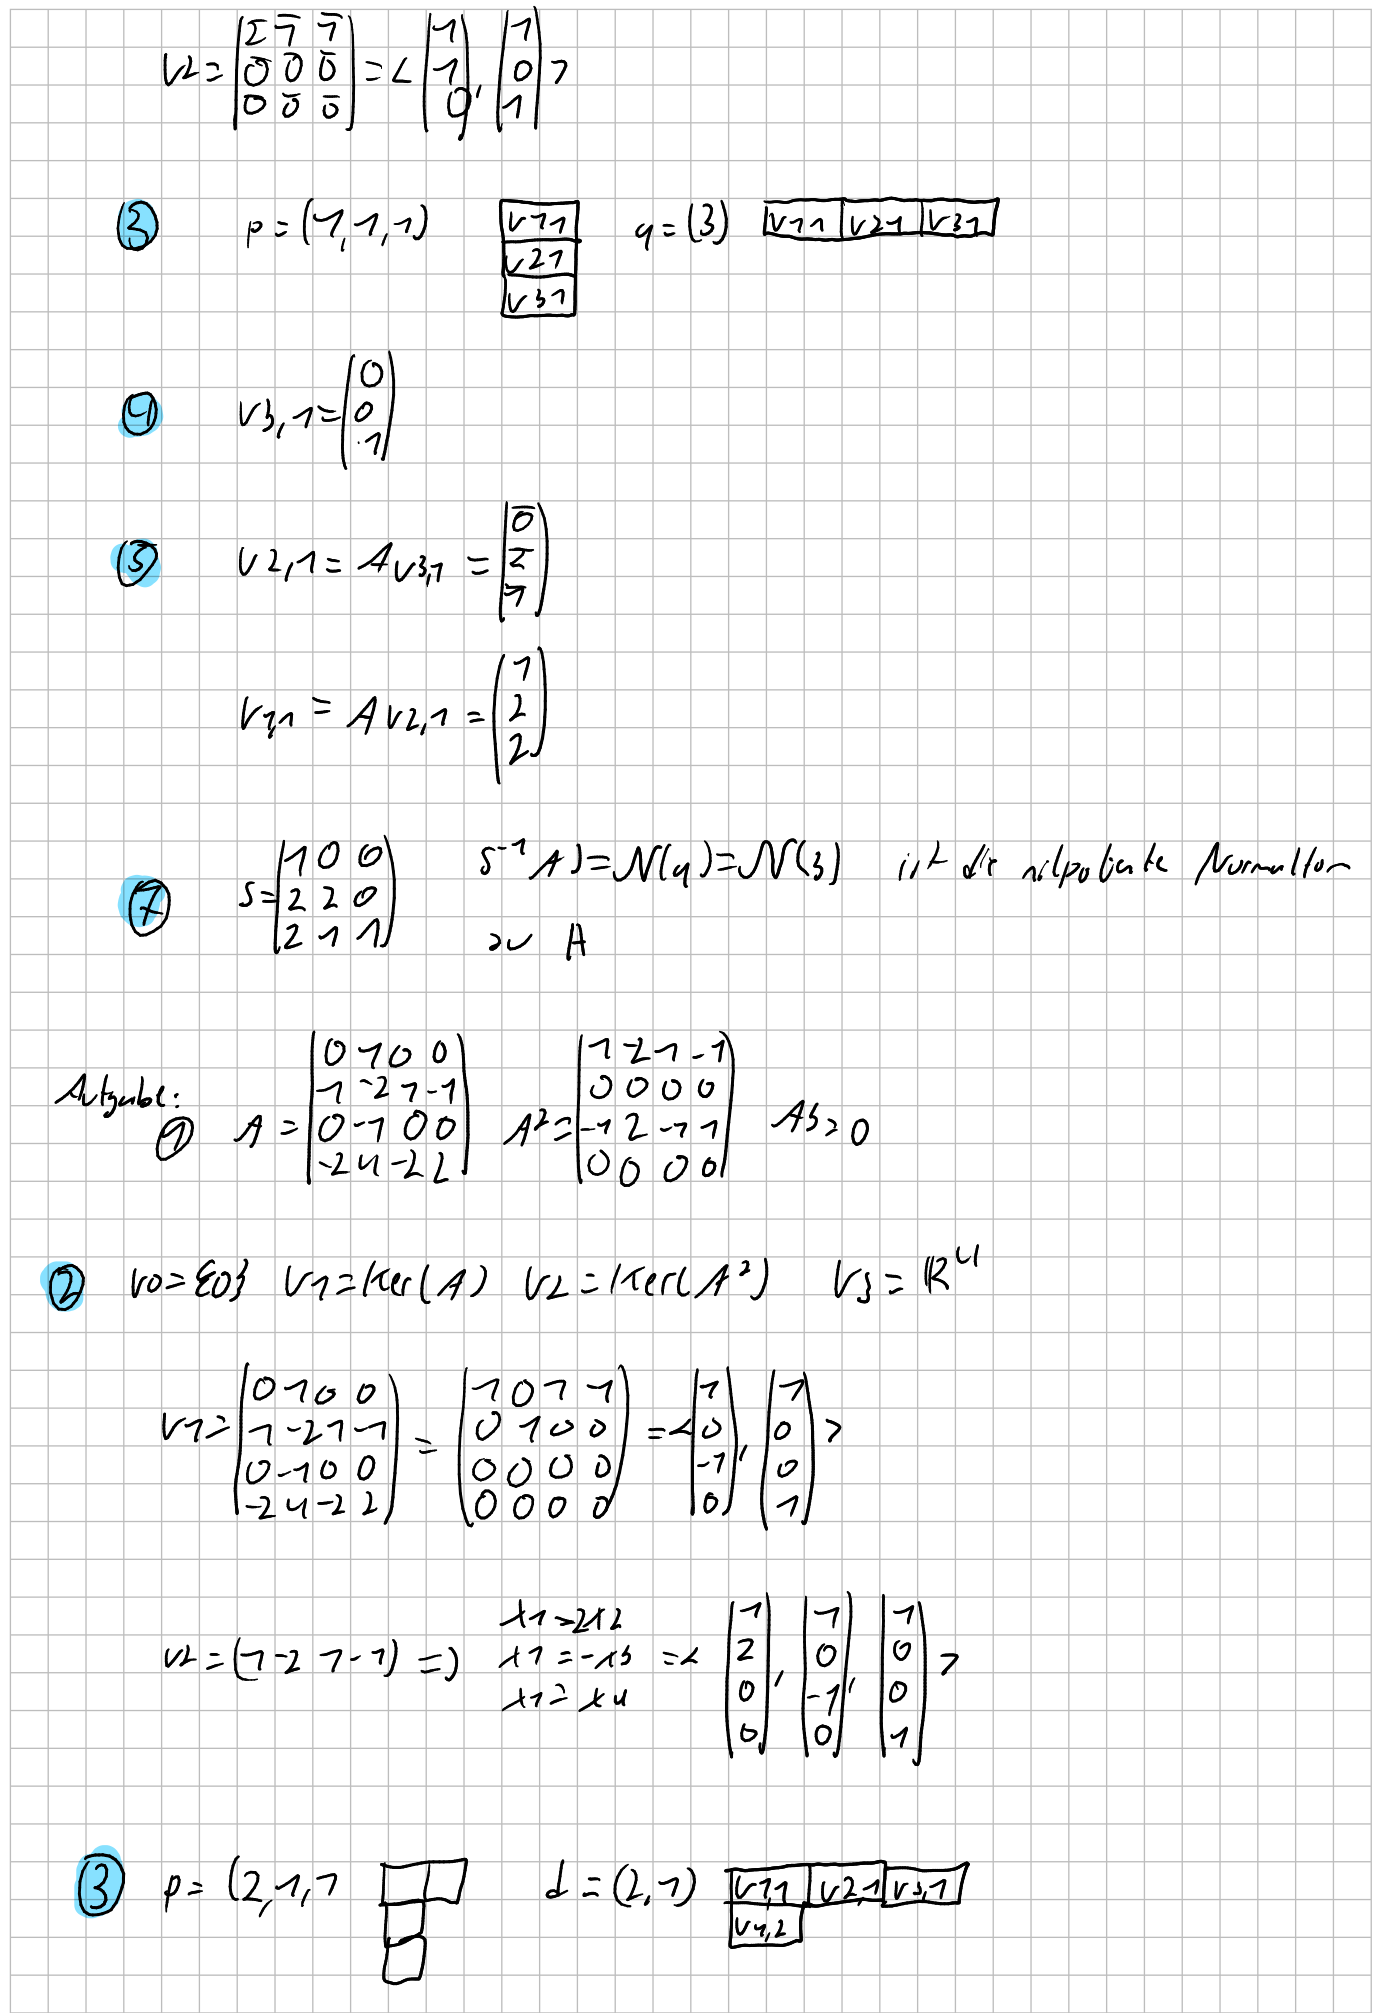 V2 = (2̅ 1̅ 1̅ / 0̅ 0̅ 0̅ / 0̅ 0̅ 0̅) = < (1 / 1 / 0), (1 / 0 / 1) >
③ p = (1,1,1) v11 v21 v31 q = (3) v11 v21 v31
④ v3,1 = (0 / 0 / 1)
⑤ v2,1 = A v3,1 = (0̅ / 2̅ / 1̅)
v1,1 = A v2,1 = (1 / 2 / 2)
⑦ S = (1 0 0 / 2 2 0 / 2 1 1) S⁻¹AS = N(q) = N(3) ist die nilpotente Normalform
zu A
Aufgabe:
① A = (0 1 0 0 / 1 -2 1 -1 / 0 -1 0 0 / -2 4 -2 2) A² = (1 -2 1 -1 / 0 0 0 0 / -1 2 -1 1 / 0 0 0 0) A3 = 0
② V0 = {0} V1 = Ker(A) V2 = Ker(A²) V3 = ℝ⁴
V1 = (0 1 0 0 / 1 -2 1 -1 / 0 -1 0 0 / -2 4 -2 2) = (1 0 1 -1 / 0 1 0 0 / 0 0 0 0 / 0 0 0 0) = < (1 / 0 / -1 / 0), (1 / 0 / 0 / 1) >
V2 = (1 -2 1 -1) => x1 = 2x2 x1 = -x3 x1 = x4 = < (1 / 2 / 0 / 0), (1 / 0 / -1 / 0), (1 / 0 / 0 / 1) >
③ p = (2,1,1 d = (2,1) v1,1 v2,1 v3,1
v1,2